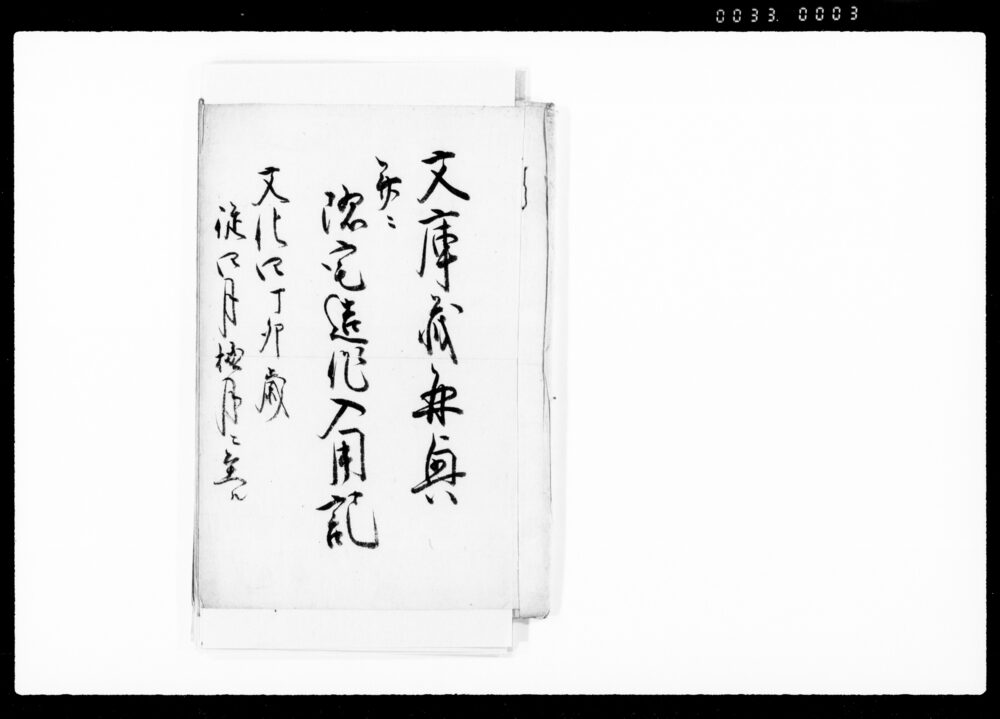 0033. 0003
文庫蔵并奥
并ニ
隠宅造作入用記
文化四丁卯歳
従四月極月ニ至ル